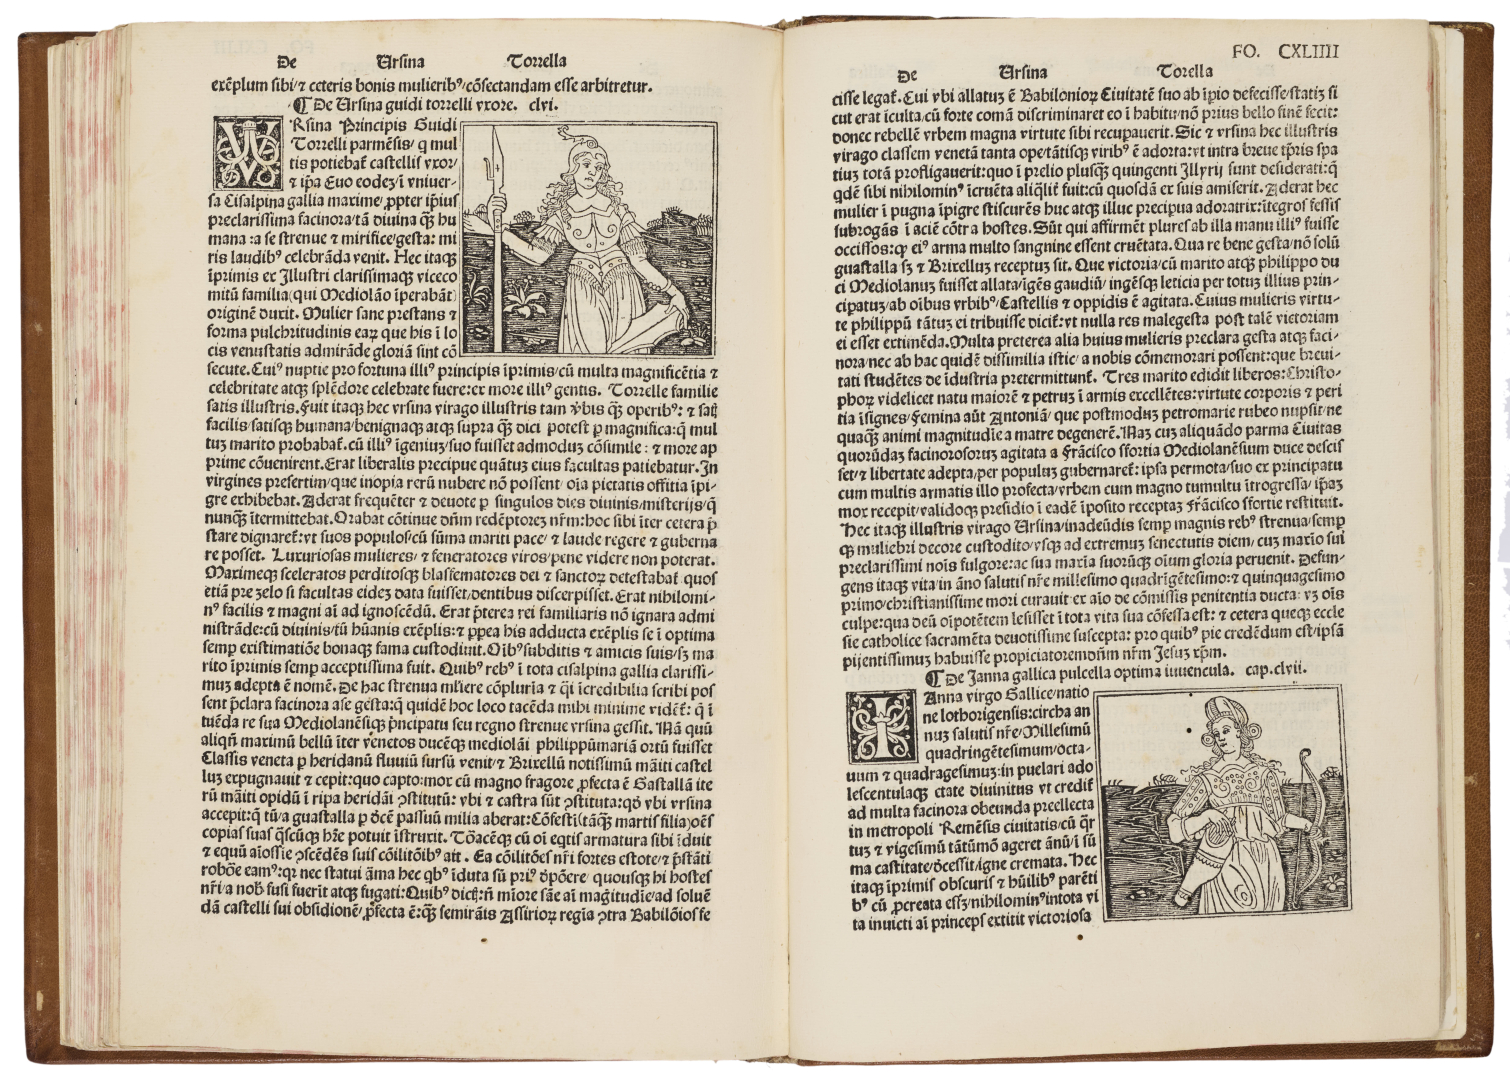 De Ursina Torrella
exēplum sibi/⁊ ceteris bonis mulierib⁹/cōsectandam esse arbitretur.
¶ De Ursina guidi torrelli vxore. clvi.
VRsina Principis Guidi
Torrelli parmēsis/ q mul
tis potiebat̄ castellis vxor/
⁊ ip̄a Euo eodeȝ/ī vniuer-
sa Cisalpina gallia maxime/ꝓpter ip̄ius
preclarissima facinora/tā diuina q̄ȝ hu
mana :a se strenue ⁊ mirifice/gesta: mi
ris laudib⁹ celebrāda venit. Hec itaqȝ
īprimis ex Illustri clarissimaqȝ viceco
mitū familia(qui Mediolāo īperabāt)
originē duxit. Mulier sane prestans ⁊
forma pulchritudinis eaꝝ que his ī lo
cis venustatis admirāde gloriā sint cō
secute. Cui⁹ nuptie pro fortuna illi⁹ principis īprimis/cū multa magnificētia ⁊
celebritate atqȝ splēdore celebrate fuere:ex more illi⁹ gentis. Torrelle familie
satis illustris. Fuit itaqȝ hec vrsina virago illustris tam v̄bis q̄ȝ operib⁹: ⁊ satȝ
facilis/satisqȝ humana/benignaqȝ atqȝ supra q̄ȝ dici potest ꝑ magnifica:q̄ mul
tuȝ marito probabat̄. cū illi⁹ īgeniuȝ/suo fuisset admoduȝ cōsimile : ⁊ more ap
prime cōuenirent. Erat liberalis precipue quātuȝ eius facultas patiebatur. In
virgines presertim/que inopia rerū nubere nō possent/ oīa pietatis offitia īpi-
gre exhibebat. Aderat frequēter ⁊ deuote ꝑ singulos dies diuinis/misterijs/q̄
nunq̄ȝ ītermittebat. Orabat cōtinue dn̄m redēptoreȝ nr̄m: hoc sibi īter cetera p̄
stare dignaret̄:vt suos populos/cū sūma mariti pace/ ⁊ laude regere ⁊ guberna
re posset. Luxuriosas mulieres/ ⁊ feneratores viros/pene videre non poterat.
Maximeqȝ sceleratos perditosqȝ blasfematores dei ⁊ sanctoꝝ detestabat̄ quos
etiā pre zelo si facultas eideȝ data fuisset/dentibus discerpisset. Erat nihilomi-
n⁹ facilis ⁊ magni aī ad ignoscēdū. Erat p̄terea rei familiaris nō ignara admi
nistrāde:cū diuinis/tū hūanis exēplis:⁊ ꝑpea his adducta exēplis se ī optima
semꝑ existimatiōe bonaqȝ fama custodiuit. Oīb⁹subditis ⁊ amicis suis/sȝ ma
rito īprimis semꝑ acceptissima fuit. Quib⁹ reb⁹ ī tota cisalpina gallia clarissi-
muȝ adepta ē nomē. De hac strenua mliere cōpluria ⁊ q̄i īcredibilia scribi pos
sent p̄clara facinora ase gesta:q̄ quidē hoc loco tacēda mihi minime vidēt̄: q̄ ī
tuēda re sua Mediolanēsiqȝ p̄ncipatu seu regno strenue vrsina gessit. Nā quū
aliqn̄ maximū bellū īter venetos ducēqȝ mediolāi philippūmariā ortū fuisset
Classis veneta ꝑ heridanū fluuiū sursū venit/⁊ Brixellū notissimū māiti castel
luȝ expugnauit ⁊ cepit:quo capto:mox cū magno fragore ꝓfecta ē Gastallā ite
rū māiti opidū ī ripa heridāi ꝯstitutū: vbi ⁊ castra sūt ꝯstituta:qō vbi vrsina
accepit:q̄ tū/a guastalla ꝑ dēcē passuū milia aberat:Cōfestī(tāqȝ martis filia)oēs
copias suas q̄scūqȝ hr̄e potuit īstruxit. Tōacēqȝ cū oī eqtis armatura sibi īduit
⁊ equū aīosse ꝯscēdēs suis cōilitōib⁹ ait . Ea cōilitōes nr̄i fortes estote/⁊ p̄stāti
robōe eam⁹:qꝛ nec statui āma hec qb⁹ īduta sū pri⁹ dpōere quousqȝ hi hostes
nr̄i/a nob̄ fusi fuerīt atqȝ fugati:Quib⁹ dict̄ȝ:n̄ miore sāe aī magītudīe/ad soluē
dā castelli sui obsidionē/ꝓfecta ē:q̄ȝ semirāis Assirioꝝ regīa ꝯtra Babilōios se
FO. CXLIIII
De Ursina Torella
cisse legat̄. Cui vbi allatuȝ ē Babilonioꝝ Ciuitatē suo ab īpio defecisse/statiȝ si
cut erat īculta/cū forte comā discriminaret eo ī habitu/nō prius bello finē fecit:
donec rebellē vrbem magna virtute sibi recupauerit. Sic ⁊ vrsina hec illustris
virago classem venetā tanta ope/tātisqȝ virib⁹ ē adorta:vt intra breue tp̄ris spa
tiuȝ totā profligauerit:quo ī prelio plusqȝ quingenti Illyrij sunt desiderati:q̄
qdē sibi nihilomin⁹ īcruēta aliq̄lit̄ fuit:cū quosdā ex suis amiserit. Aderat hec
mulier ī pugna īpigre stiscurēs huc atqȝ illuc precipua adoratrix:ītegros fessis
subrogās ī aciē cōtra hostes. Sūt qui affirmēt plures ab illa manu illi⁹ fuisse
occisos:qȝ ei⁹ arma multo sanguine essent cruētata. Qua re bene gesta/nō solū
guastalla sȝ ⁊ Brixelluȝ receptuȝ sit. Que victoria/cū marito atqȝ philippo du
ci Mediolanuȝ fuisset allata/īgēs gaudiū/ ingēsqȝ leticia per totuȝ illius prin-
cipatuȝ/ab oībus vrbib⁹/Castellis ⁊ oppidis ē agitata. Cuius mulieris virtu-
te philippū tātuȝ ei tribuisse dicit̄:vt nulla res malegesta post talē victoriam
ei esset extimēda. Multa preterea alia huius mulieris preclara gesta atqȝ faci-
nora/nec ab hac quidē dissimilia istic/ a nobis cōmemorari possent:que breui-
tati studētes de īdustria pretermittunt̄. Tres marito edidit liberos:Christo-
phoꝝ videlicet natu maiorē ⁊ petruȝ ī armis excellētes:virtute corporis ⁊ peri
tia īsignes/Femina aūt Antoniā/ que postmoduȝ petromarie rubeo nupsit/ne
quaqȝ animi magnitudīe a matre degenerē. Naȝ cuȝ aliquādo parma Ciuitas
quorūdaȝ facinorosoruȝ agitata a Frācisco sfortia Mediolanēsium duce descis
set/⁊ libertate adepta/per populuȝ gubernaret̄: ipsa permota/suo ex principatu
cum multis armatis illo profecta/vrbem cum magno tumultu ītrogressa/ ip̄aȝ
mox recepit/validoqȝ presidio ī eadē īposito receptaȝ Frācisco sfortie restituit.
Hec itaqȝ illustris virago Ursina/inadeūdis semꝑ magnis reb⁹ strenua/semꝑ
qȝ muliebri decore custodito/vsqȝ ad extremuȝ senectutis diem/ cuȝ maxīo sui
preclarissimi noīs fulgore:ac sua maxīa suorūqȝ oīum gloria peruenit. Defun-
gens itaqȝ vita/in āno salutis nr̄e millesimo quadrīgētesimo:⁊ quinquagesimo
primo/christianissime mori curauit ex aīo de cōmissis penitentia ducta: vȝ oīs
culpe:qua deū oīpotētem lesisset ī tota vita sua cōfessa est: ⁊ cetera queqȝ eccle
sie catholice sacramēta deuotissime suscepta: pro quib⁹ pie credēdum est/ipsā
pijentissimuȝ habuisse propiciatoremdn̄m nr̄m Jesuȝ xp̄m.
¶ De Janna gallica pulcella optima iuuencula. cap.clvii.
IAnna virgo Gallice/natio
ne lothorigensis:circha an
nuȝ salutis nr̄e/Millesimū
quadringētesimum/octa-
uum ⁊ quadragesimuȝ:in puelari ado
lescentulaqȝ etate diuinitus vt credit̄
ad multa facinora obeunda preellecta
in metropoli Remēsis ciuitatis/cū q̄r
tuȝ ⁊ vigesimū tātūmō ageret ānū/ī sū
ma castitate/dēcessit/igne cremata. Hec
itaqȝ īprimis obscuris ⁊ hūilib⁹ parēti
b⁹ cū ꝓcreata esset/nihilomin⁹intota vi
ta inuicti aī princeps extitit victoriosa